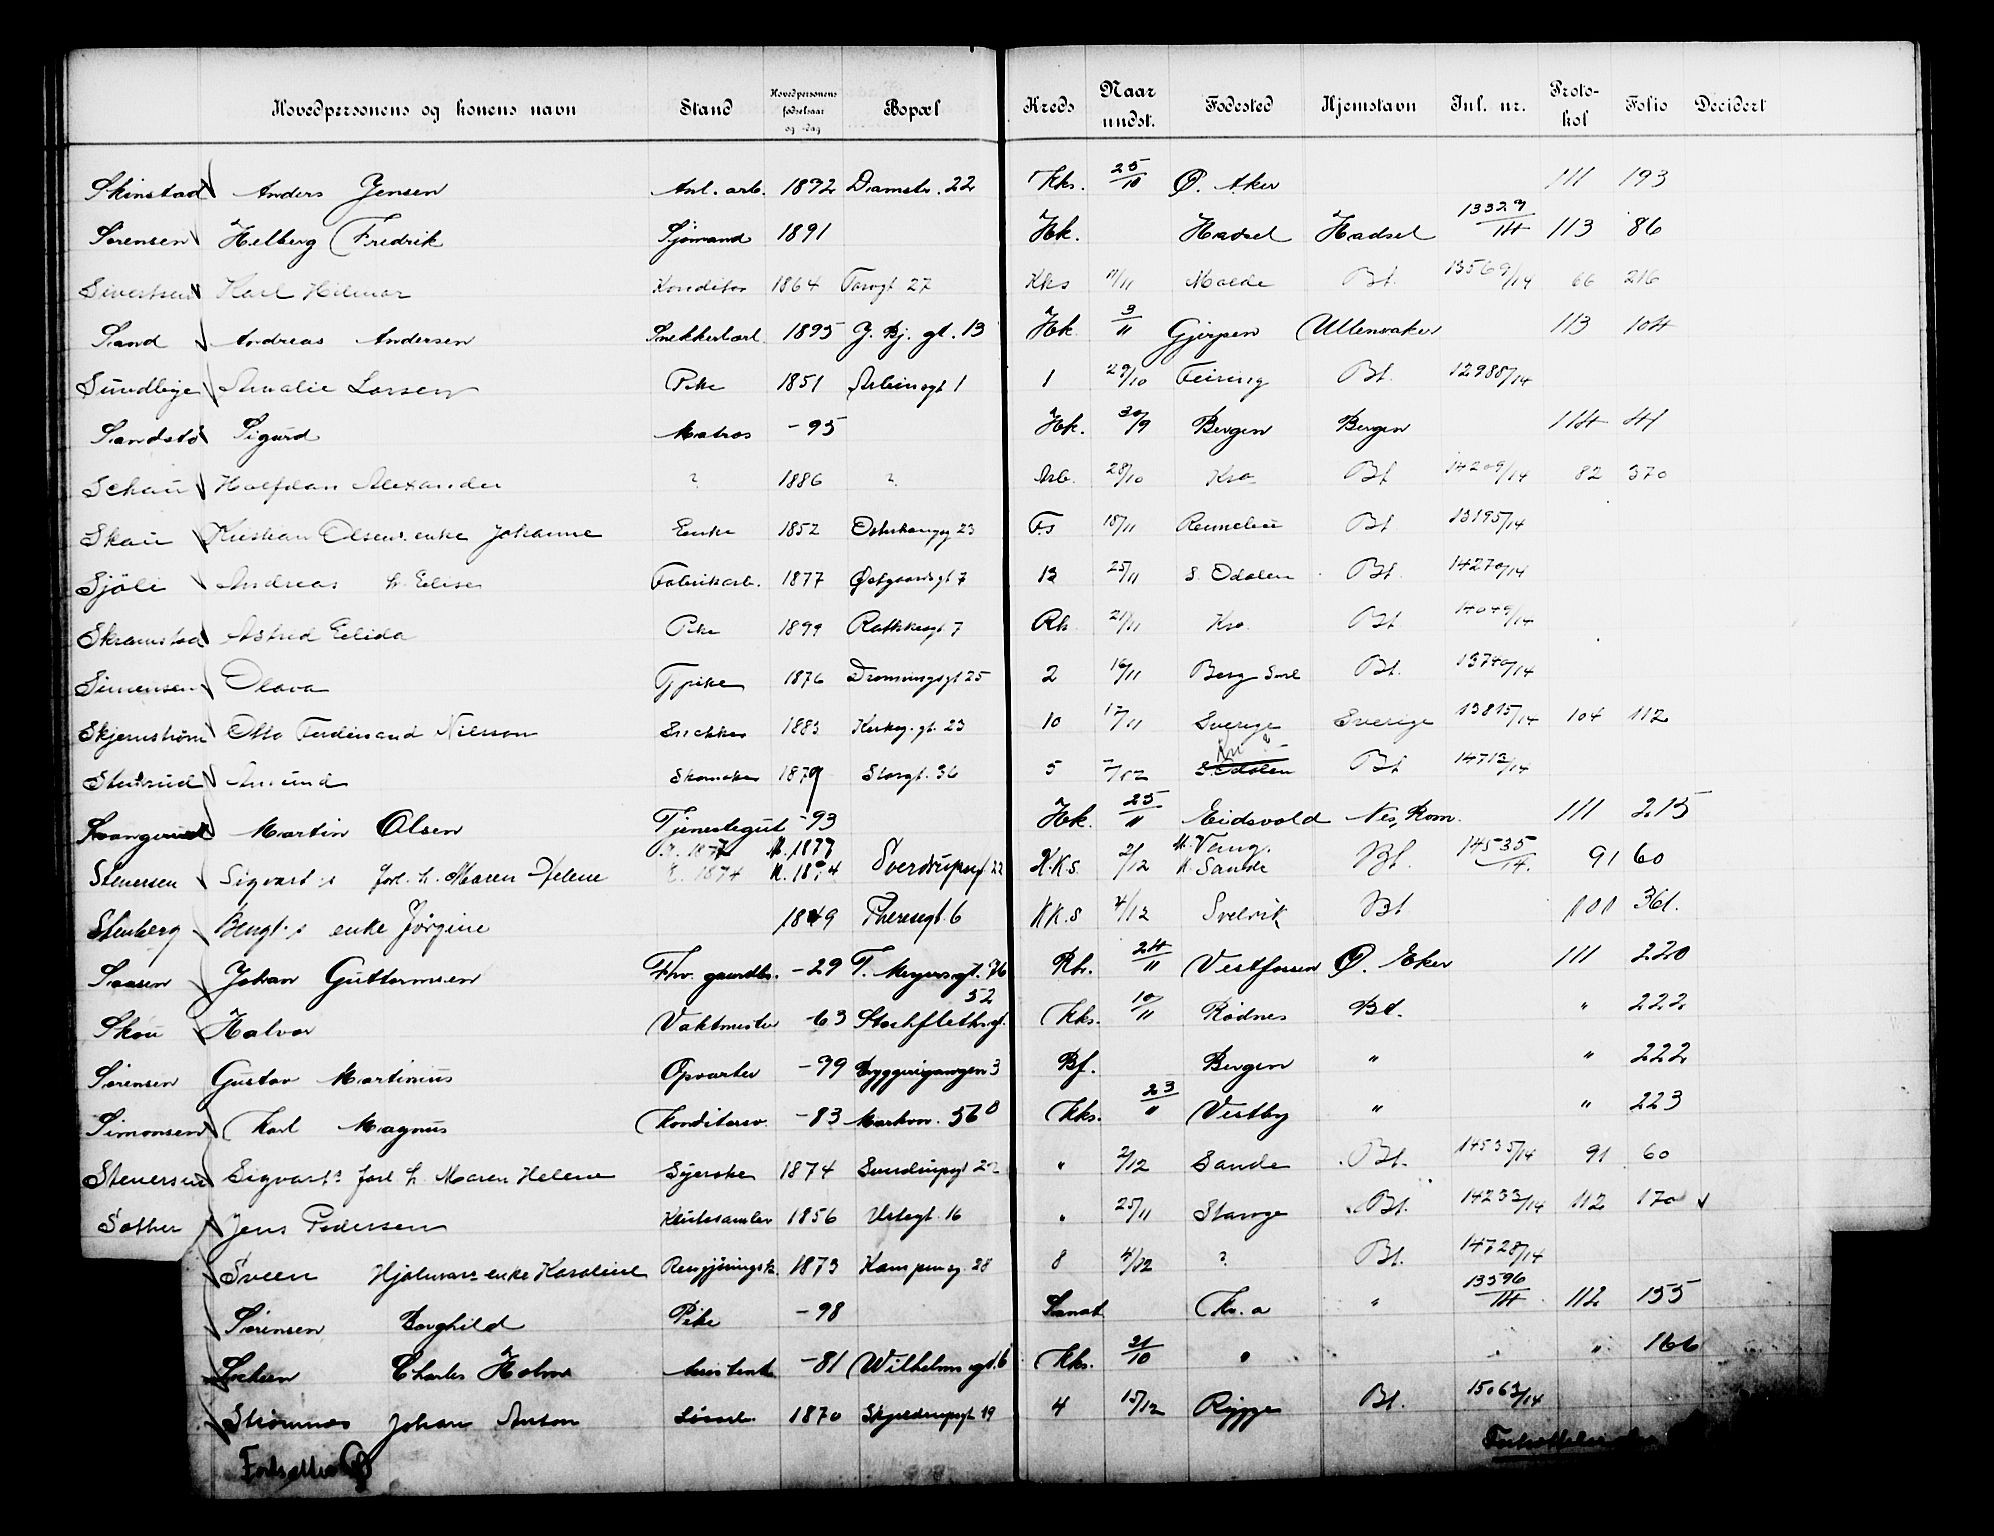 Hovedpersonens og konens navn Stand Hovedpersonens fødselsaar og -dag Bopæl Kreds Naar undst. Fødested Hjemstavn Inl. nr. Protokol Folio Decidert
Skinstad Anders Jensen Anl. arb. 1892 Damstr. 22 Kks. 25/10 Ø. Aker 111 193
Sørensen Helberg Fredrik Sjømand 1891 Hk. Hadsel Hadsel 13329/14 113 86
Sivertsen Karl Hilmar Konditor 1864 Torvgt 27 Kks /11 Molde Bt. 13569/14 66 216
Sand Andreas Andersen Snekkerlærl. 1895 J. Bj. gt. 13 Hk. 3/11 Gjerpen Ullensaker 113 104
Sundbye Amalie Larsen Pike 1851 1 1 29/10 Feiring Bt. 12988/14
Sandstø Sigurd Matros -95 Hk. 30/9 Bergen Bergen 114 41
Schau Halfdan Alexander ? 1886 ? Arb. 28/10 Kra Bt 14209/14 82 370
Skau Kristian Olsens enke Johanne Enke 1852 23 Fs 18/11 Bt. 13195/14
Sjöli Andreas h. Elise Fabrikarb. 1877 Østgaardsgt 7 13 25/11 S. Odalen Bt. 14270/14
Skramstad Astrid Elida Pike 1899 Rathkesgt 7 Rh. 21/11 Kra. Bt. 14049/14
Simensen Olava Tjpike 1876 Dronningsgt 25 2 16/11 Berg Bt. 13740/14
Skjernstrøm Otto Ferdinand Nilsson Snekker 1883 Kirkeg. gt. 23 10 17/11 Sverige Sverige 13815/14 104 112
Amund Skomaker 1879 Storgt. 36 5 /12 S Odalen Bt 14712/14
Martin Olsen Tjenestegut -93 Hk. 25/11 Eidsvold Nes, Rom. 111 215
Stenersen Sigvart's forl. h. Maren Helene M. 1877 K. 1874 Sverdrupsgt 22 K.K.S. 2/12 M. Vang. K. Sande Bt. 14535/14. 91 60
Stenberg Bengt's enke Jørgine 1849 Theresegt. 6 KK.S 4/12 Svelvik Bt 101 361.
Saasen Johan Guttormsen Fhv. gaardbr. -29 T. Meyersgt. 76 Rh. 24/11 Vestfossen Ø. Eker 111 220
Skou Halvor Vaktmester -63 Stockflethsgt. 52 Kks. 10/11 Rødnes Bt. " 222
Sørensen Gustav Martinius Opvarter -99 Bryggerigangen 3 Bf. Bergen " " 222
Simonsen Karl Magnus Konditorsv. -83 Markvn. 56 Kks. 23/11 Vestby " " 223
Stenersen Sigvarts forl h. Maren Helene Syerske 1874 Sverdrupsgt 22 " 2/12 Sande Bt. 14535/14 91 60
Sother Jens Pedersen Klutesamler 1856 Urtegt. 16 " 25/11 Stange Bt. 14233/14 112 170
Sveen Hjalmars enke Karoline Rengjøringsk. 1873 Kampensg. 28 8 4/12 ? Bt. 14728/14
Sørensen Borghild Pike -98 Sanat Kr.a " 13596/14 112 155
Charles Holm Assistent -81 Wilhelms gt. 6 Kks. 21/10 " " 166
Strømnæs Johan Anton 1870 19 4 15/12 Rygge Bt. 15063/14
Fortsættes